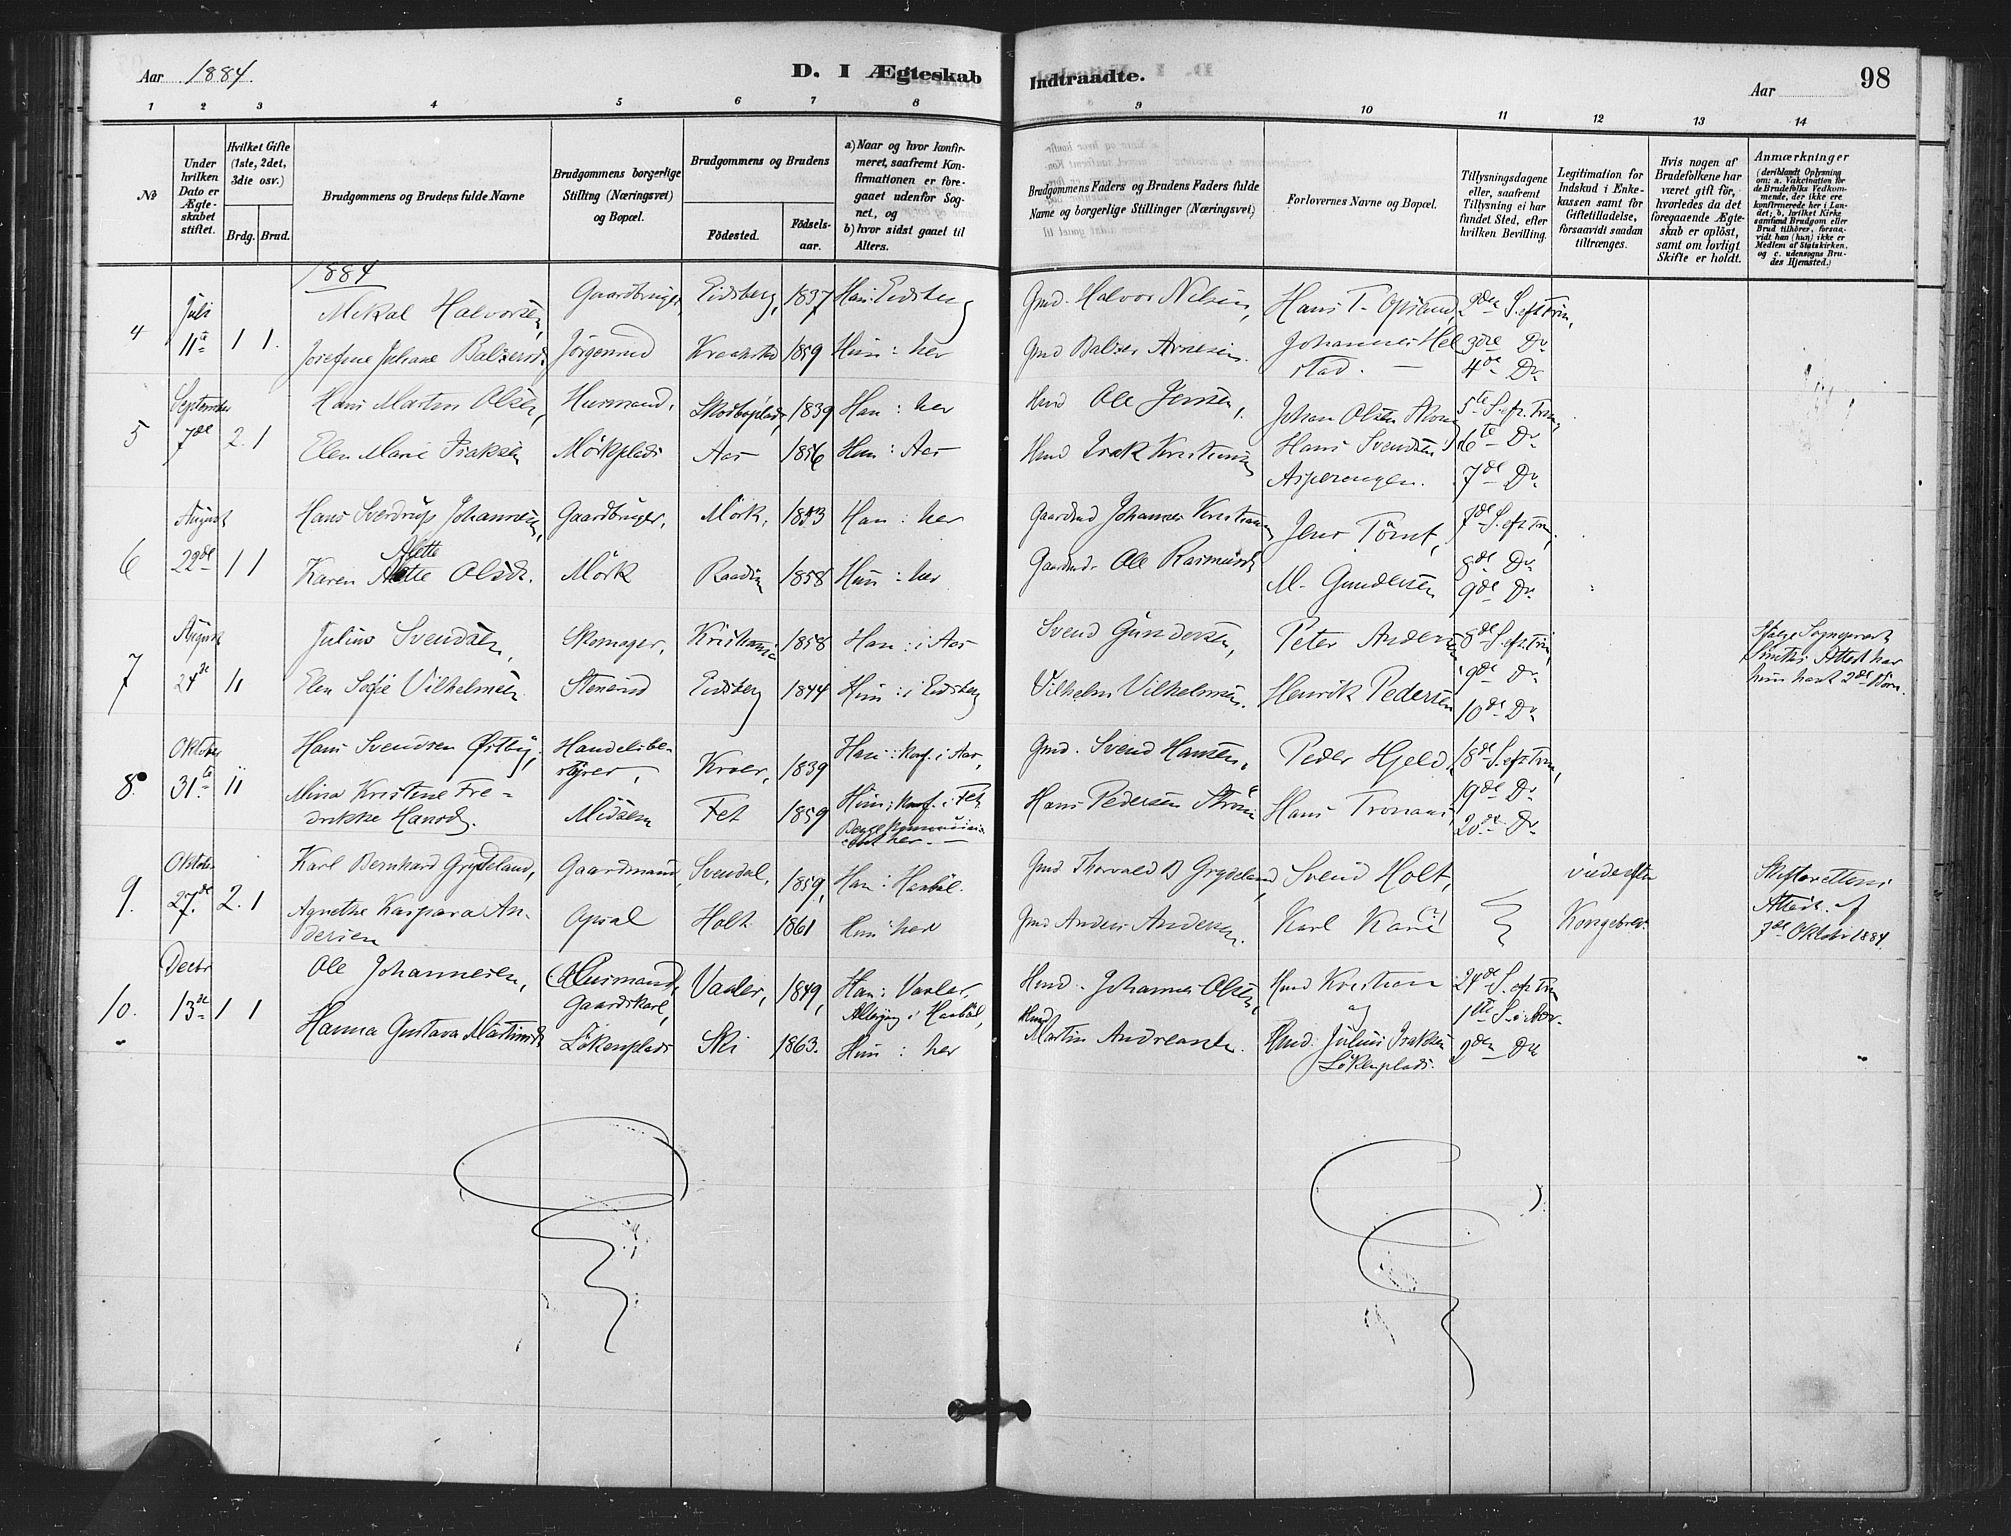 Aar 1884.
D. I Ægteskab
Indtraadte.
Aar
98
1 2 3 4 5 6 7 8 9 10 11 12 13 14
No
Under hvilken Dato er Ægteskabet stiftet.
Hvilket Gifte (1ste, 2det, 3die osv.)
Brdg. Brud.
Brudgommens og Brudens fulde Navne
Brudgommens borgerlige Stilling (Næringsvei) og Bopæl.
Brudgommens og Brudens
Fødested.
Fødsels-aar.
a) Naar og hvor konfirmeret, saafremt Konfirmationen er foregaaet udenfor Sognet, og
b) hvor sidst gaaet til Alters.
Brudgommens Faders og Brudens Faders fulde Navne og borgerlige Stillinger (Næringsvei)
Forlovernes Navne og Bopæl.
Tillysningsdagene eller, saafremt Tillysning ei har fundet Sted, efter hvilken Bevilling.
Legitimation for Indskud i Enkekassen samt for Giftetilladelse, forsaavidt saadan tiltrænges.
Hvis nogen af Brudefolkene har været gift før, hvorledes da det foregaaende Ægteskab er opløst, samt om lovligt Skifte er holdt.
Anmærkninger
(deriblandt Oplysning om: a. Vakcination for de Brudefolks Vedkommende, der ikke ere konfirmerede her i Landet; b. hvilket Kirkesamfund Brudgom eller Brud tilhører, forsaavidt han (hun) ikke er Medlem af Statskirken, og c. udensogns Brudes Hjemsted.)
1884
4 Juli 11te 1 1. Mikal Halvorsen, Gaardbruger, Eidsberg, 1837 Han: Eidsberg Gmd. Halvor Nilsen, Hans T. Opsand, 2den S. eft Trin,
Josefine Johane Balzersd. Jørgenrud Kraakstad 1859 Hun: her Gmd Balzer Arnesen. Johannes Helstad. 3die Do
4de Do
5 September 7de 2. 1 Hans Martin Olsen, Husmand, Skodboplads, 1839 Han: her Hmd Ole Jensen, Johan Olsen 5te S. ef. Trin,
Elen Marie Isaksen Mörkplads Aas 1856 Hun: Aas Hmd Isak Kristiansen Hans Svendsen 6te Do
Asperengen. 7de Do
6 August 22de 1 1 Hans Sverdrup Johannesen, Gaardbruger, Mörk, 1853 Han: her Gaardmd Johannes Kristiansen Jens Tomt, 7de S. eft Trin,
Karen Alette Olsdr. Mörk 1858 Hun: her Gaardmd. Ole Rasmussen M. Gundersen 8de Do
9de Do
7 August 24de 1 1 Julius Svendsen, Skomager, Kristiania 1858 Han: i Aas Svend Gundersen, Peter Andersen 8de S. eft Trin, Sognepræst
Elen Sofie Vilhelmsen Stenrud Eidsberg 1844 Hun: i Eidsberg Vilhelm Vilhelmsen. Henrik Pedersen 9de Do Attest har
10de Do hun havt 2de Børn.
8. Oktober 31te 1 1 Hans Svendsen Østby, Handelsbestyrer, Kroer, 1839 Han: konf. i Aas, Gmd. Svend Hansen, Peder Hjeld, 18de S. eft Trin,
Mina Kristene Fredrikke Hansd. Midsem Fet 1859 Hun: konf. i Fet Hans Pedersen Hans Tronaas, 19de Do
Begge her. 20de Do
9. Oktober 27de 2. 1 Karl Bernhard Grydeland, Gaardmand, Svendal, 1859, Han: Haabøl. Gmd Thorvald B Grydeland, Svend Holt, viede efter Skifterettens
Agnethe Kaspara Andersen Opsal Holt 1861 Hun her Gmd Anders Andersen. Karl Karl (?) Kongebrev. Attest af 7de Oktober 1884.
10. Decbr 13de 1 1 Ole Johannesen, Husmand, Gaardskarl, Vaaler, 1849, Han: Vaaler, Hmd. Johannes Olsen, Hmd Kristian 24de S. ef Trin
Altergang i Haabøl, og 1ste S. i Adv.
Hanna Gustava Martinsd. Lökenplads Ski 1863. Hun: her Hmd Martin Andreasen. Hmd. Julius Isaksen 2den Do
Lökenplads.